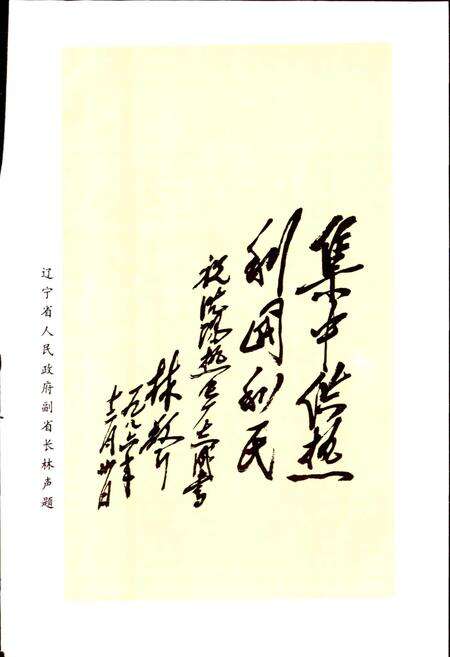 集中供热
利国利民
祝沈阳热电厂志成书
林声
一九八六年
十二月卅日
辽宁省人民政府副省长林声题